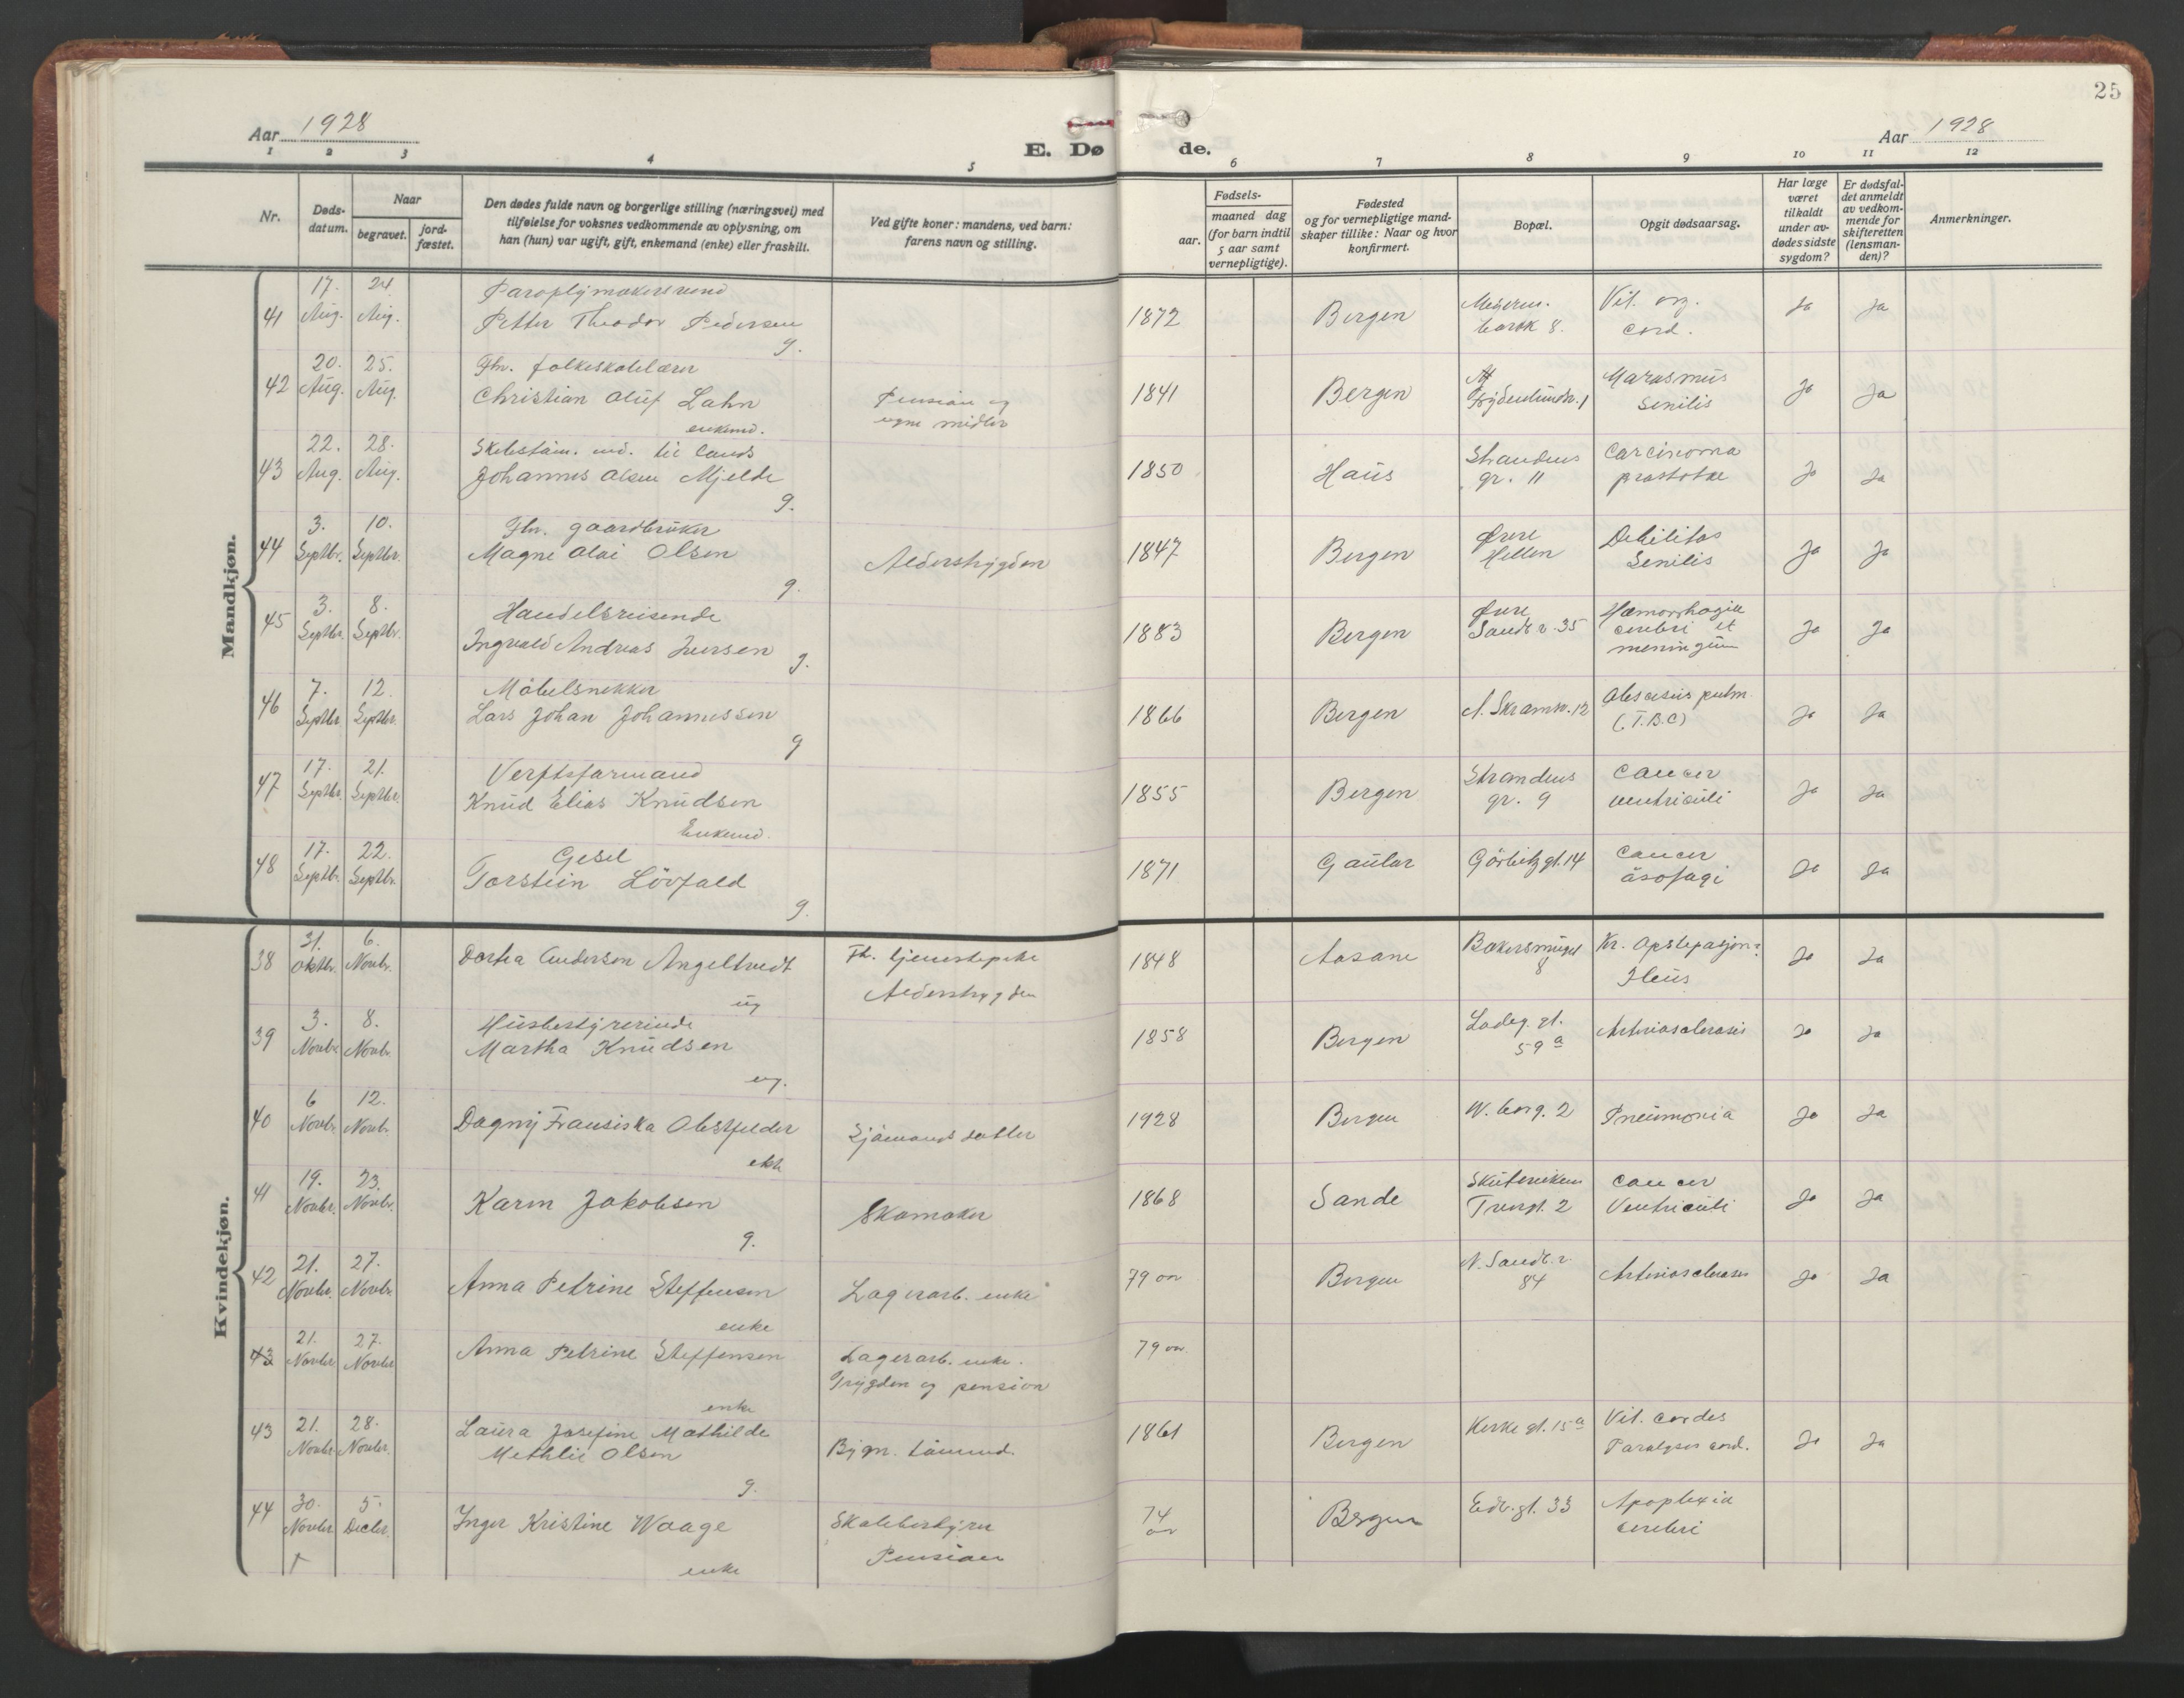 25
Aar 1928
E. Døde.
Aar 1928
1 2 3 4 5 6 7 8 9 10 11 12
Nr.
Døds-datum.
Naar
begravet.
jord-fæstet.
Den dødes fulde navn og borgerlige stilling (næringsvei) med
tilføielse for voksnes vedkommende av oplysning, om
han (hun) var ugift, gift, enkemand (enke) eller fraskilt.
Ved gifte koner: mandens, ved barn:
farens navn og stilling.
Fødsels-
aar.
maaned dag
(for barn indtil
5 aar samt
vernepligtige).
Fødested
og for vernepligtige mand-
skaper tillike: Naar og hvor
konfirmert.
Bopæl.
Opgit dødsaarsag.
Har læge
været
tilkaldt
under av-
dødes sidste
sygdom?
Er dødsfal-
det anmeldt
av vedkom-
mende for
skifteretten
(lensman-
den)?
Anmerkninger.
Mandkjøn.
41 17. Aug. 24 Aug. Paraplymakersvend
Petter Theodor Pedersen g. 1872 Bergen 8. Vit. org. cord. Ja Ja
42 20. Aug. 25. Aug. Fhv. folkeskolelærer
Christian Oluf Lahn enkemd. Pension og egne midler 1841 Bergen Frydenlundsv. 1 Marasmus Senilis Ja Ja
43 22. Aug. 28. Aug. til lands
Johannes Olsen Mjelde g. 1850 Haus Strandens gr. 11 Carcinoma prostatae Ja Ja
44 3. Septbr. 10. Septbr. Fhv. gaardbruker
Magne Olai Olsen g. Alderstrygden 1847 Bergen Øvre Hellen Debilitas Senilis Ja Ja
45 3. Septbr. 8. Septbr. Handelsreisende
Ingvald Andreas Iversen g. 1883 Bergen Øvre Sandv. 35 Hæmorrhagia cerebri et meningum Ja Ja
46 7. Septbr. 12. Septbr. Möbelsnekker
Lars Johan Johannessen g 1866 Bergen N. Skramsv. 12 Abscesus pulm. (T.B.C) Ja Ja
47 17. Septbr. 21. Septbr. Verftsformand
Knud Elias Knudsen Enkemd. 1855 Bergen Strandens gr. 9 Cancer ventriculi Ja Ja
48 17. Septbr. 22. Septbr. Gesel
Torstein Lövfald g. 1871 Gaular Görbitz gt. 14 Cancer äsofagi Ja Ja
Kvindekjøn.
38 31. Oktbr. 6. Novbr. Dorthea Anderson Angeltvedt ug Fh. tjenestepike
Alderstrygden 1848 Aasane Bakersmuget 8 Kr. Opstipasjon: Ileus Ja Ja
39 3. Novbr. 8. Novbr. Husbestyrerinde
Martha Knudsen ug. 1858 Bergen Ladeg. gt. 59a Arteriosclerosis Ja Ja
40 6 Novbr. 12. Novbr. Dagny Fransiska Obstfelder ekte Sjömands datter 1928 Bergen W. borg. 2 Pneumonia Ja Ja
41 19. Novbr. 23. Novbr. Karen Jakobsen g. Skomaker 1868 Sande Skuteviken Torvgt. 2 Cancer Ventriculi Ja Ja
42 21. Novbr. 27. Novbr. Anna Petrine Steffensen enke Lagerarb. enke 79 aar Bergen N. Sandv. 84 Arteriosclerosis Ja Ja
43 21. Novbr. 27. Novbr. Anna Petrine Steffensen enke Lagerarb. enke.
Trygden og pension 79 aar
43 21. Novbr. 28. Novbr. Laura Josefine Mathilde
Methlie Olsen g. Bygn. tömmd. 1861 Bergen Kirke gt. 15a Vit. cordis Paralyses cord. Ja Ja
44 30. Novbr. 5. Decbr. Inger Kristine Waage enke Skolebestyrer
Pension 74 aar Bergen Edv. gt. 33 Apoplexia cerebri